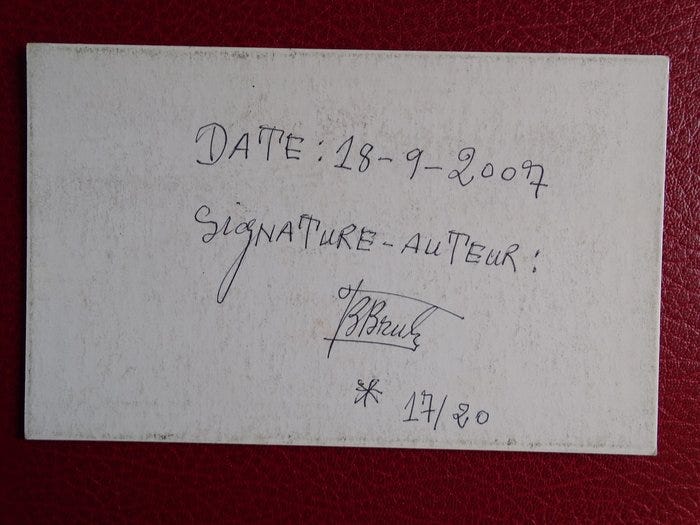 DATE: 18-9-2007
SIGNATURE-AUTEUR:
* 17/20